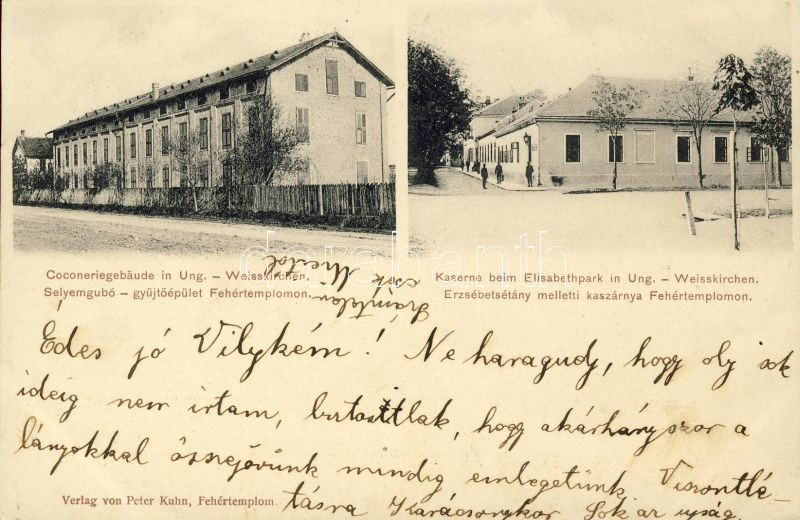 Coconeriegebäude in Ung. – Weisskirchen.
Selyemgubó – gyüjtőépület Fehértemplomon.
Kaserne beim Elisabethpark in Ung. – Weisskirchen.
Erzsébetsétány melletti kaszárnya Fehértemplomon.
csók
Édes jó Vilykém! Ne haragudj, hogy oly sok
ideig nem irtam, biztosittlak, hogy akárhányszor a
lányokkal összejövünk mindig emlegetünk Viszontlá-
tásra Karácsonykor Sok az ujság
Verlag von Peter Kuhn, Fehértemplom
darabanth